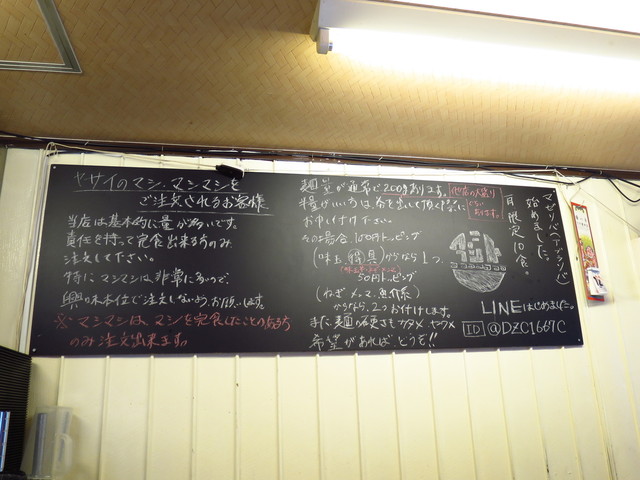 ヤサイのマシ・マシマシを
ご注文されるお客様
当店は基本的に量が多いです。
責任を持って完食出来る方のみ
注文して下さい。
特にマシマシは、非常に多いので、
興味本位で注文しないよう、お願いします。
※マシマシは、マシを完食したことのある方
のみ注文出来ます。
麺量が通常で200gあります。
他店の大盛り
くらい
あります。
少な
お申し付け下さい。
その場合、100円トッピング
(味玉、
からなら1つ、
50円トッピング
(ねぎ、メンマ、魚粉
からなら、2つお付けします。
また、麺の硬さもカタメ、ヤワメ
希望があれば、どうぞ!!
マゼソバ(アブラソバ)
始めました。
限定10食。
LINEはじめました。
ID @DZC1667C